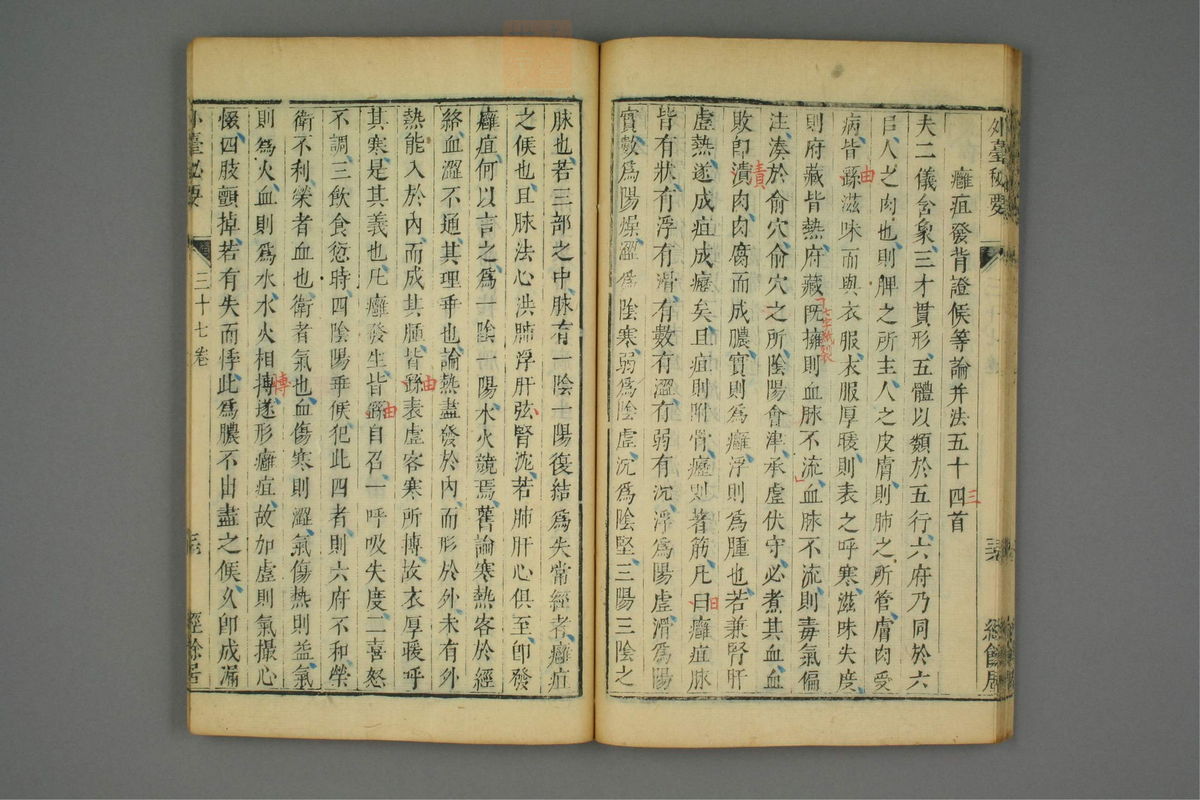 外臺秘要
經餘居
癰疽發背證候等論并法五十四首
三
夫二儀含象三才貫形五體以類於五行六府乃同於六
臣人之肉也則脾之所主人之皮膚則肺之所管膚肉受
病皆繇滋味而與衣服衣服厚暖則表之呼寒滋味失度
由
則府藏皆熱府藏既擁則血脉不流血脉不流則毒氣偏
注湊於俞穴俞穴之所陰陽會津承虛伏守必煮其血血
敗即潰肉肉腐而成膿實則為癰浮則為腫也若兼腎肝
虛熱遂成疽成癧矣且疽則附骨癧則著筋凡曰癰疽脉
皆有狀有浮有滑有數有澀有弱有沉浮為陽虛滑為陽
實數為陽燥澀為陰寒弱為陰虛沉為陰堅三陽三陰之
脉也若三部之中脉有一陰一陽復結為失常經者癰疽
之候也且脉法心洪肺浮肝弦腎沈若肺肝心俱至即發
癰疽何以言之為一陰一陽水火競焉舊論寒熱客於經
絡血澀不通其理乖也論熱盡發於內而形於外未有外
熱能入於內而成其腫皆繇表虛客寒所搏故衣厚暖呼
由
其寒是其義也凡癰發生皆繇自召一呼吸失度二喜怒
由
不調三飲食愆時四陰陽乖候犯此四者則六府不和榮
衛不利榮者血也衛者氣也血傷寒則澀氣傷熱則益氣
則為火血則為水水火相搏遂形癰疽故如虛則氣撮心
慑四肢顫掉若有失而悸此為膿不出盡之候久即成漏
外臺秘要
三十七卷
經餘居